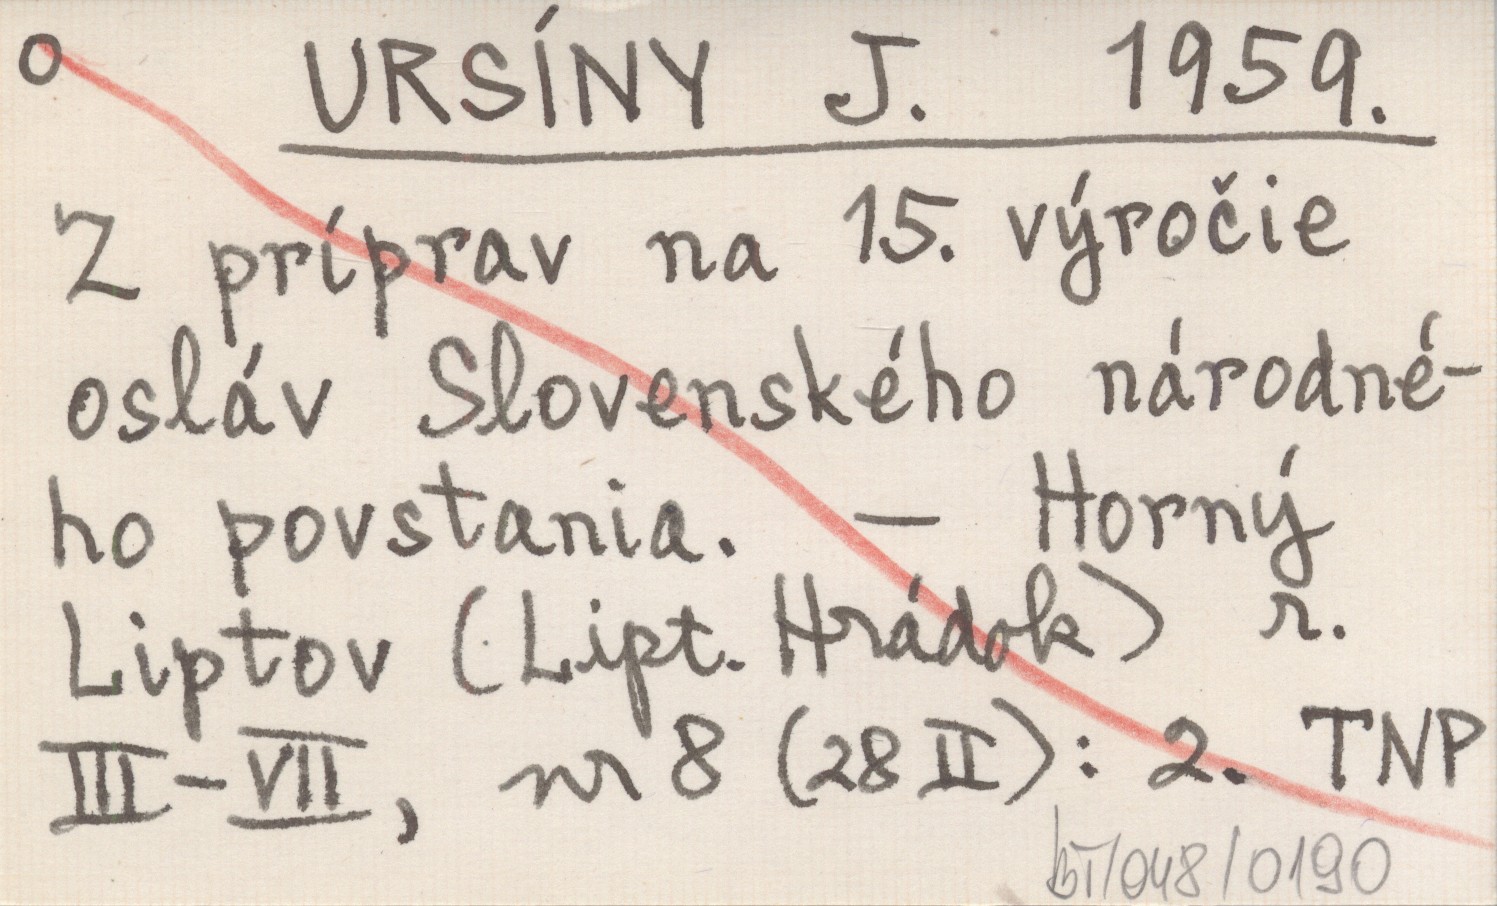 o URSÍNY J. 1959.
Z príprav na 15. výročie
osláv Slovenského národné-
ho povstania. — Horný
Liptov (Lipt. Hrádok) r.
III-VII, nr 8 (28 II): 2. TNP
bT/048/0190